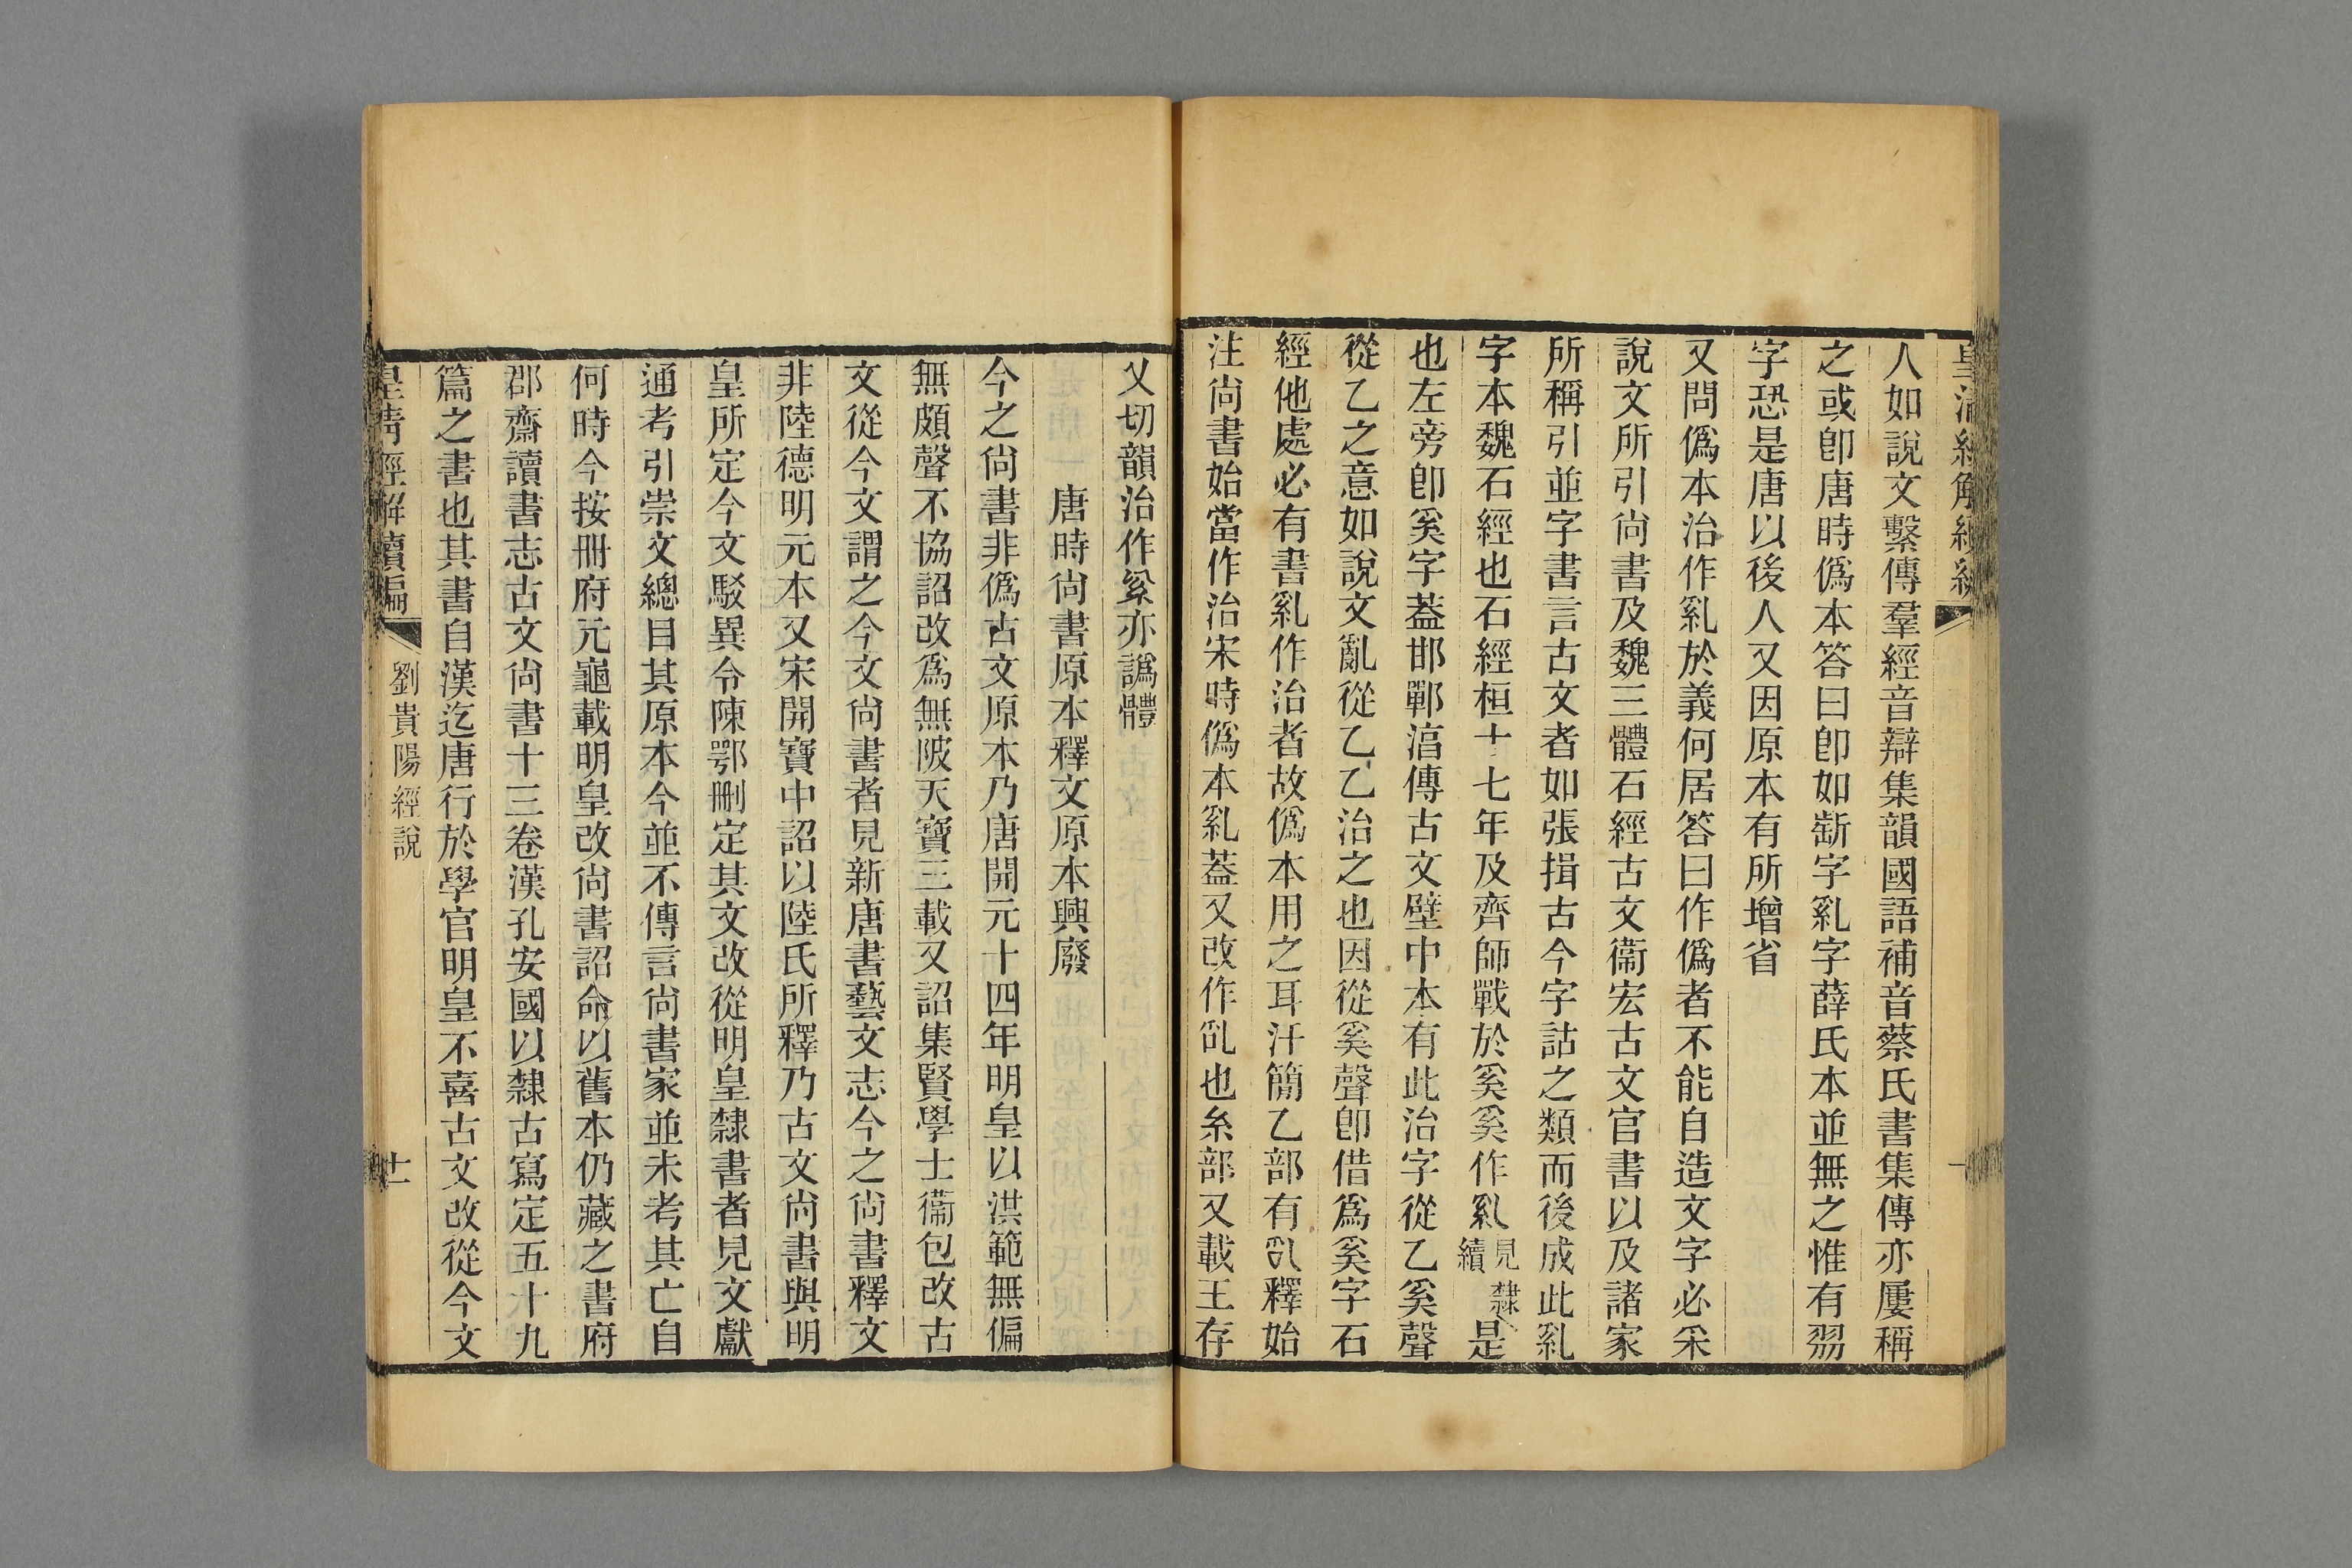 皇清經解續編
人如說文繫傳羣經音辯集韻國語補音蔡氏書集傳亦屢稱
之或卽唐時僞本答曰卽如斮字乿字薛氏本並無之惟有㓞
字恐是唐以後人又因原本有所增省
又問僞本治作乿於義何居答曰作僞者不能自造文字必采
說文所引尙書及魏三體石經古文衞宏古文官書以及諸家
所稱引並字書言古文者如張揖古今字詁之類而後成此乿
字本魏石經也石經桓十七年及齊師戰於奚奚作乿見隸續是
也左旁卽奚字蓋邯鄲湻傳古文壁中本有此治字從乙奚聲
從乙之意如說文亂從乙乙治之也因從奚聲卽借爲奚字石
經他處必有書乿作治者故僞本用之耳汗簡乙部有乿釋始
注尙書始當作治宋時僞本乿蓋又改作乨也糸部又載王存
乂切韻治作亦譌體
唐時尙書原本釋文原本興廢
今之尙書非僞古文原本乃唐開元十四年明皇以洪範無偏
無頗聲不協詔改爲無陂天寶三載又詔集賢學士衞包改古
文從今文謂之今文尙書者見新唐書藝文志今之尙書釋文
非陸德明元本又宋開寶中詔以陸氏所釋乃古文尙書與明
皇所定今文駁異令陳鄂刪定其文改從明皇隸書者見文獻
通考引崇文總目其原本今並不傳言尙書家並未考其亡自
何時今按冊府元龜載明皇改尙書詔命以舊本仍藏之書府
郡齋讀書志古文尙書十三卷漢孔安國以隸古寫定五十九
篇之書也其書自漢迄唐行於學官明皇不喜古文改從今文
皇清經解續編
劉貴陽經說
十一